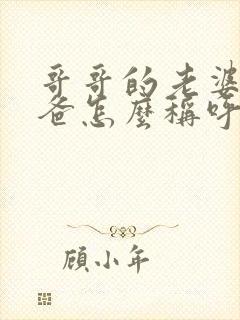 哥哥的老婆
爸怎麼稱呼
顧小年